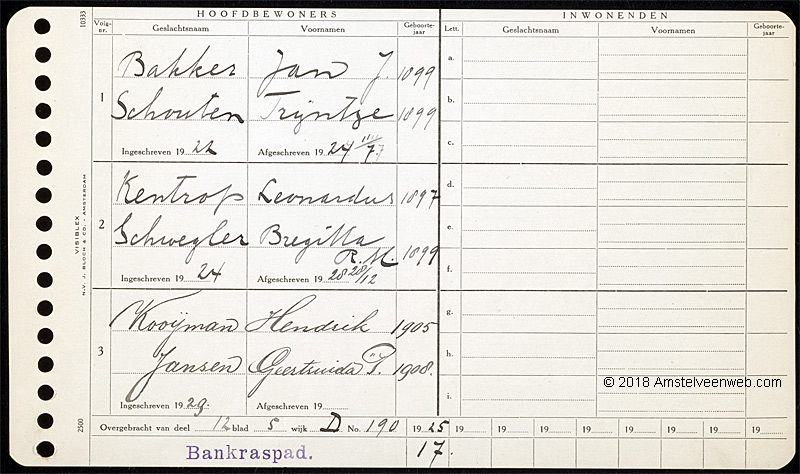 10333
HOOFDBEWONERS
INWONENDEN
Volg-nr. Geslachtsnaam Voornamen Geboorte-jaar Lett. Geslachtsnaam Voornamen Geboorte-jaar
1
Bakker Jan J. 1899
Schouten Trijntje 1899
Ingeschreven 19 22 Afgeschreven 19 24
2
Kentrop Leonardus 1897
Schwegler Bregitta 1899
R.M.
Ingeschreven 19 24 Afgeschreven 19 28 28/12
3
Kooijman Hendrik 1905
Jansen Geertruida P. 1908.
Ingeschreven 19 29. Afgeschreven 19
a.
b.
c.
d.
e.
f.
g.
h.
i.
VISIBLEX
N.V. J. BLOCH & CO. - AMSTERDAM
2500
© 2018 Amstelveenweb.com
Overgebracht van deel 12 blad 5 wijk D No. 190 19 25 19 19 19 19 19 19 19 19
Bankraspad. 17.